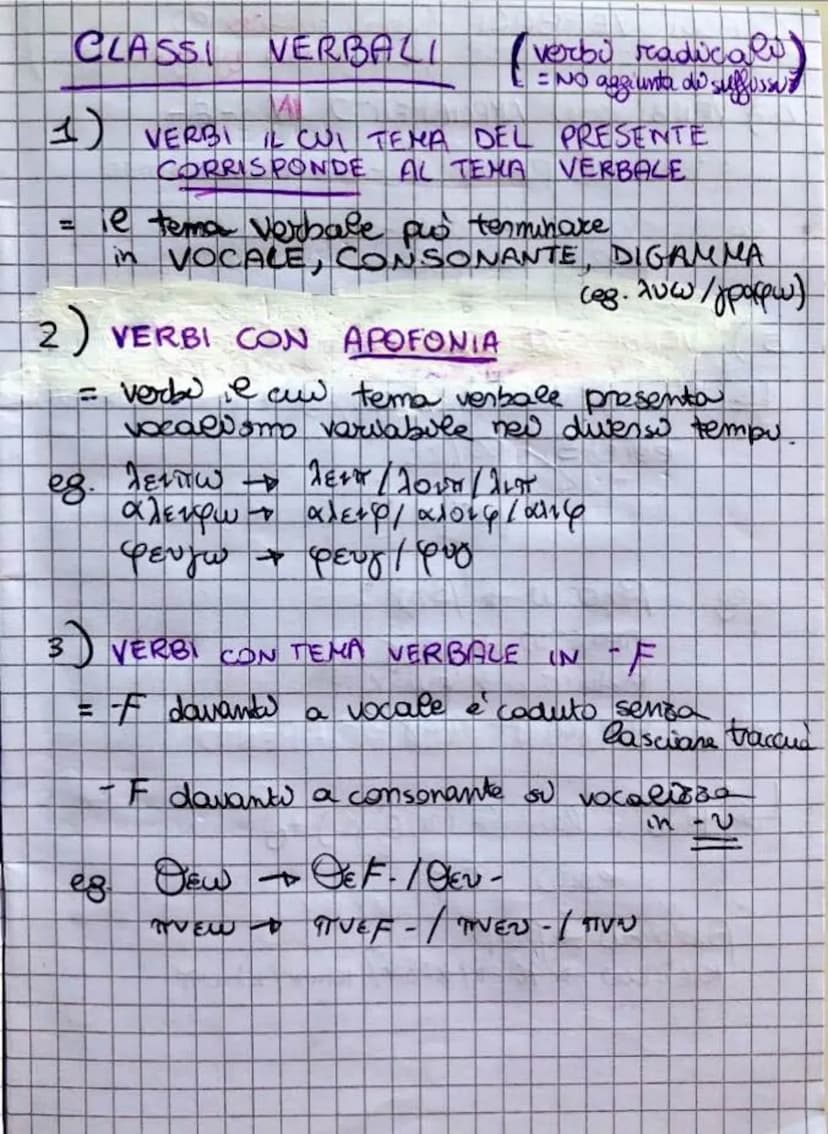 CLASSI VERBALI (verbi radicali
= NO aggiunta di suffissi)
1) VERBI IL CUI TEMA DEL PRESENTE
CORRISPONDE AL TEMA VERBALE
= il tema verbale può terminare
in VOCALE, CONSONANTE, DIGAMMA
(eg. λυω/γραφω)
2) VERBI CON APOFONIA
= verbi il cui tema verbale presenta
vocalismo variabile nei diversi tempi.
eg. λειπω → λειπ/λοιπ/λιπ
αλειφω → αλειφ/αλοιφ/αλιφ
φευγω → φευγ/φυγ
3) VERBI CON TEMA VERBALE IN -F
= -F davanti a vocale è caduto senza
lasciare traccia
- F davanti a consonante si vocalizza
in -υ
eg. θεω → θεF-/θευ-
πνεω → πνεF-/πνευ-/πνυ